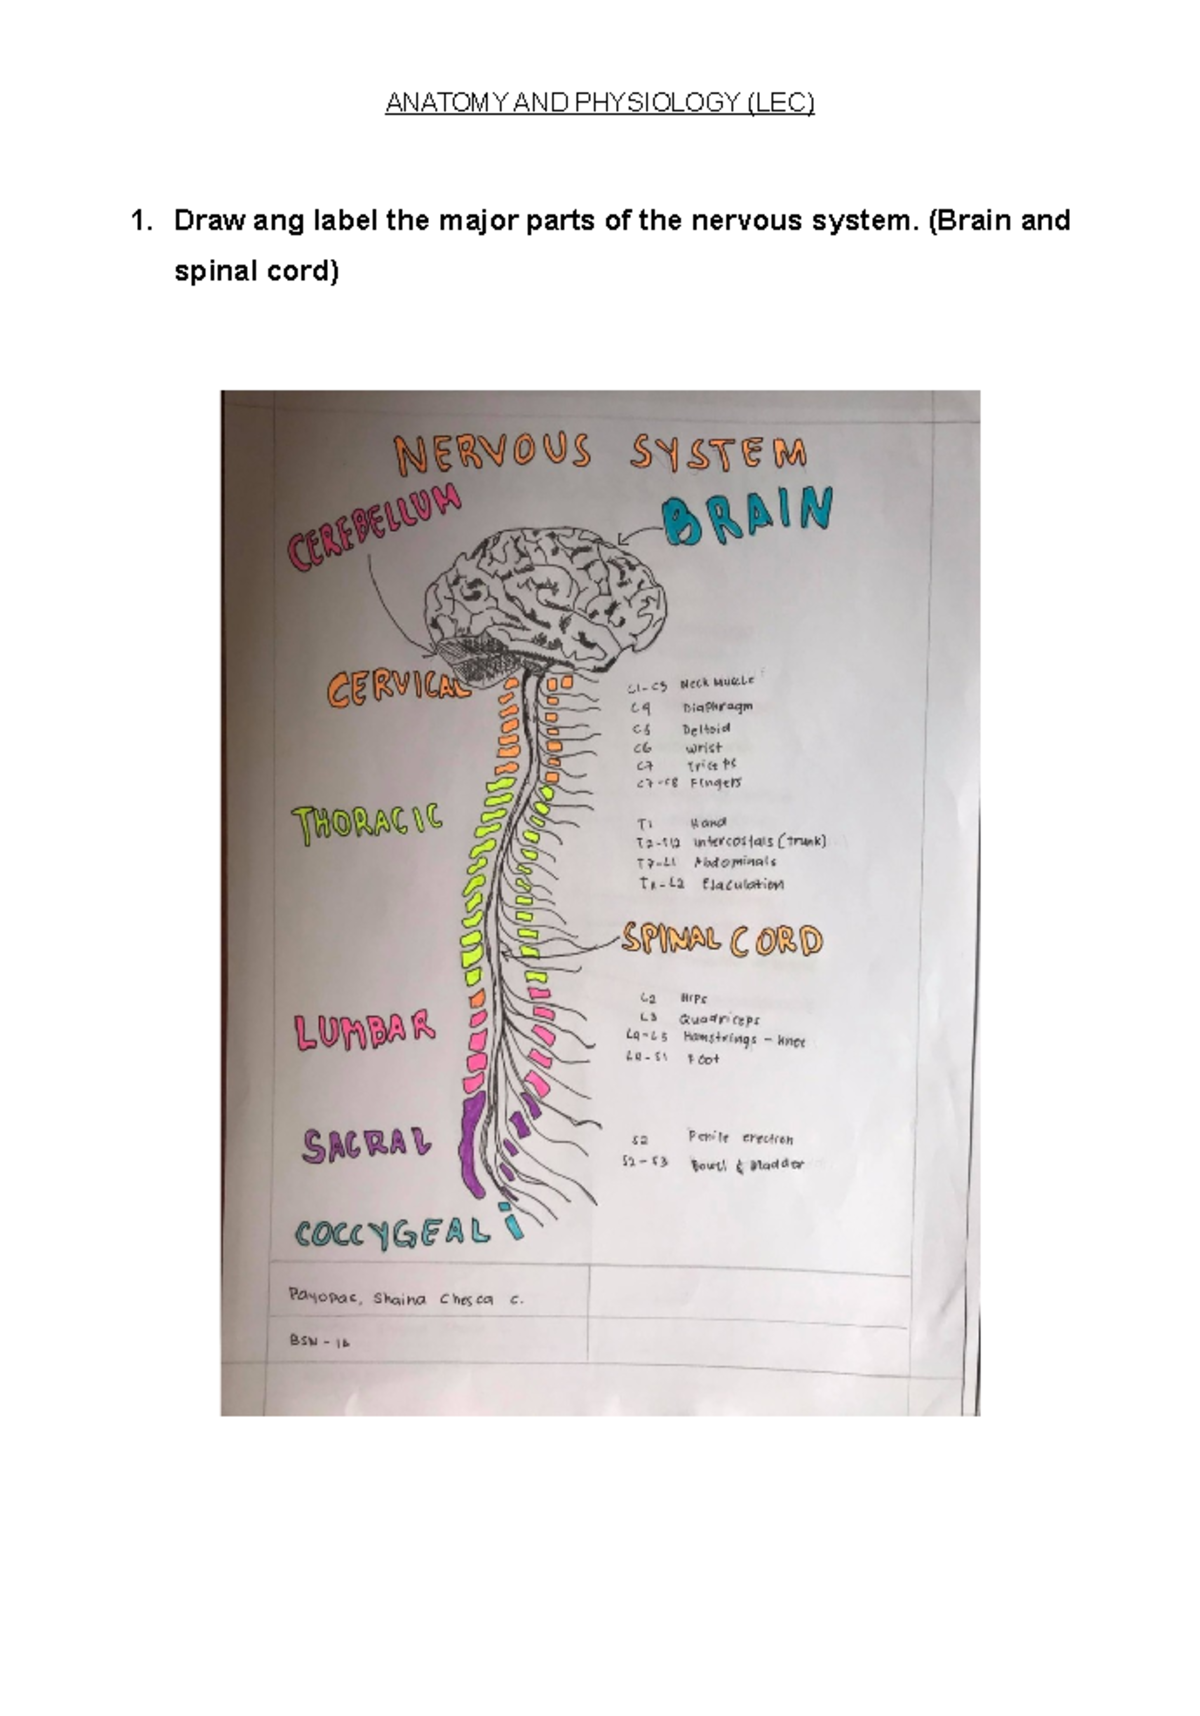 ANATOMY AND PHYSIOLOGY (LEC)
1. Draw ang label the major parts of the nervous system. (Brain and
spinal cord)
NERVOUS SYSTEM
CEREBELLUM
BRAIN
CERVICAL
C1-C3 Neck Muscle
C4 Diaphragm
C5 Deltoid
C6 wrist
C7 Triceps
C7-C8 Fingers
THORACIC
T1 Hand
T2-T12 intercostals (Trunk)
T7-L1 Abdominals
T11-L2 Ejaculation
SPINAL CORD
LUMBAR
L2 Hips
L3 Quadriceps
L4-L5 Hamstrings - Knee
L4-S1 Foot
SACRAL
S2 Penile erection
S2-S3 Bowel & Bladder
COCCYGEAL
Payopac, Shaina Chesca C.
BSN - 1B